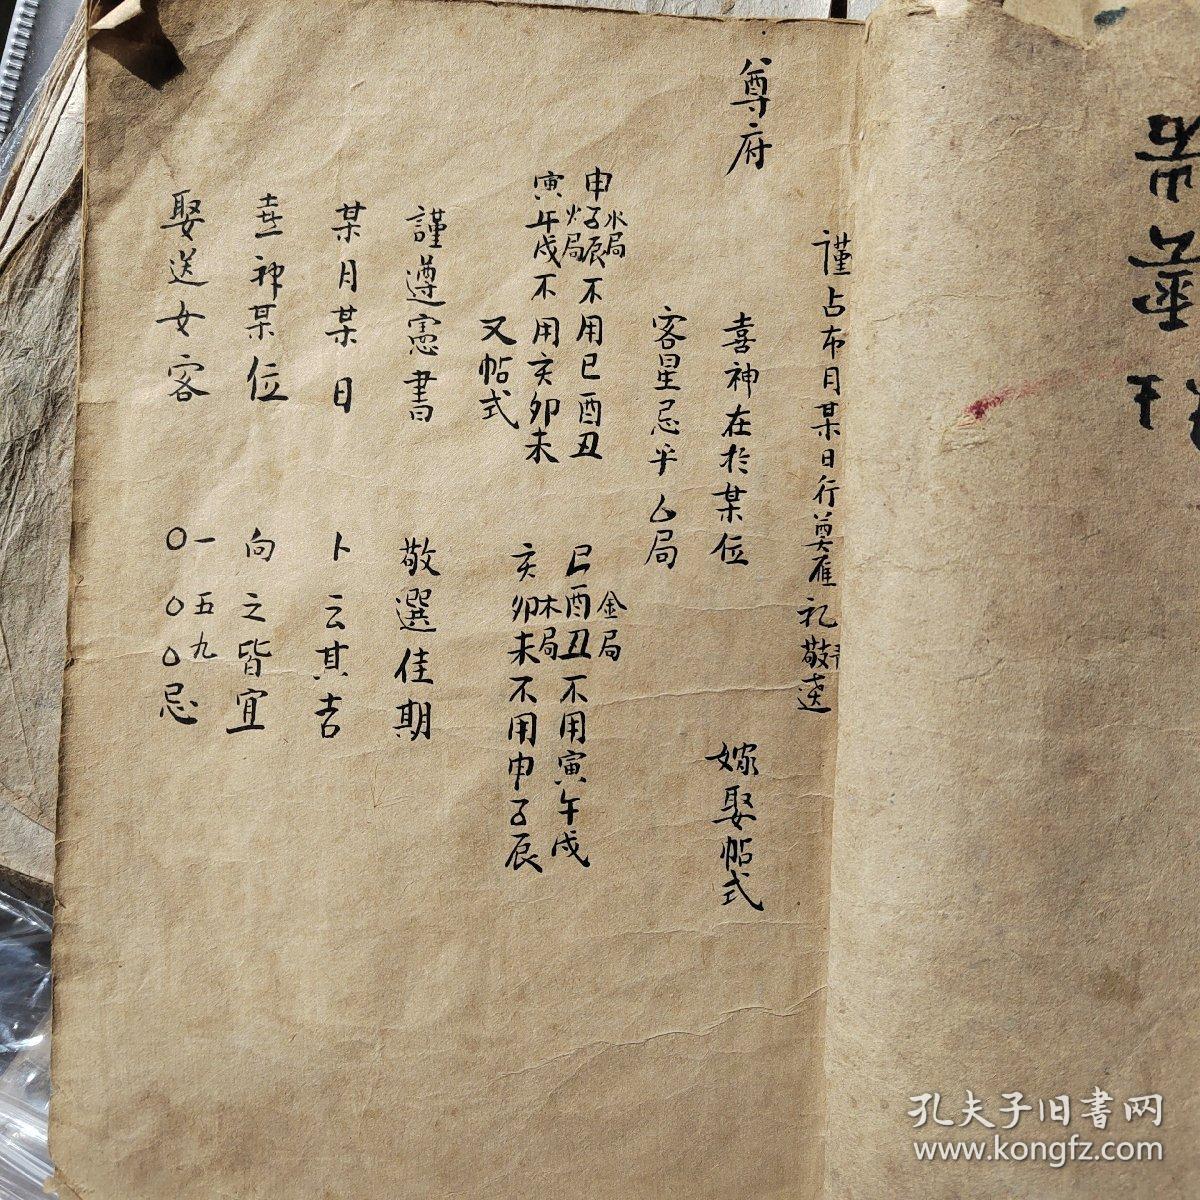 謹占布月某日行奠雁礼敬送
尊府
喜神在於某位
嫁娶帖式
客星忌乎厶局
水局
申子辰不用巳酉丑
金局
巳酉丑不用寅午戌
火局
寅午戌不用亥卯未
木局
亥卯未不用申子辰
又帖式
謹遵憲書
敬選佳期
某月某日
卜云其吉
喜神某位
向之皆宜
娶送女客
一五九
〇〇〇忌
孔夫子旧書网
www.kongfz.com